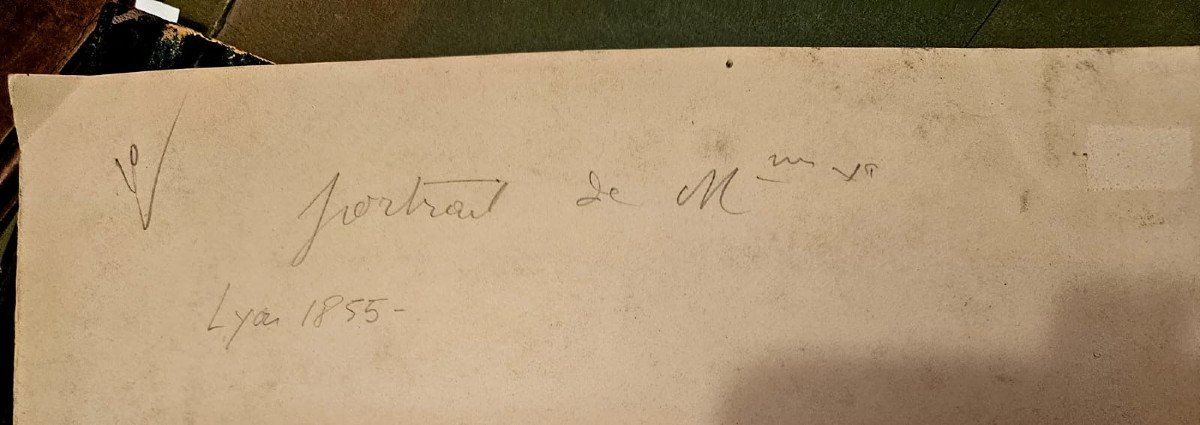 portrait de M
Lyon 1855-